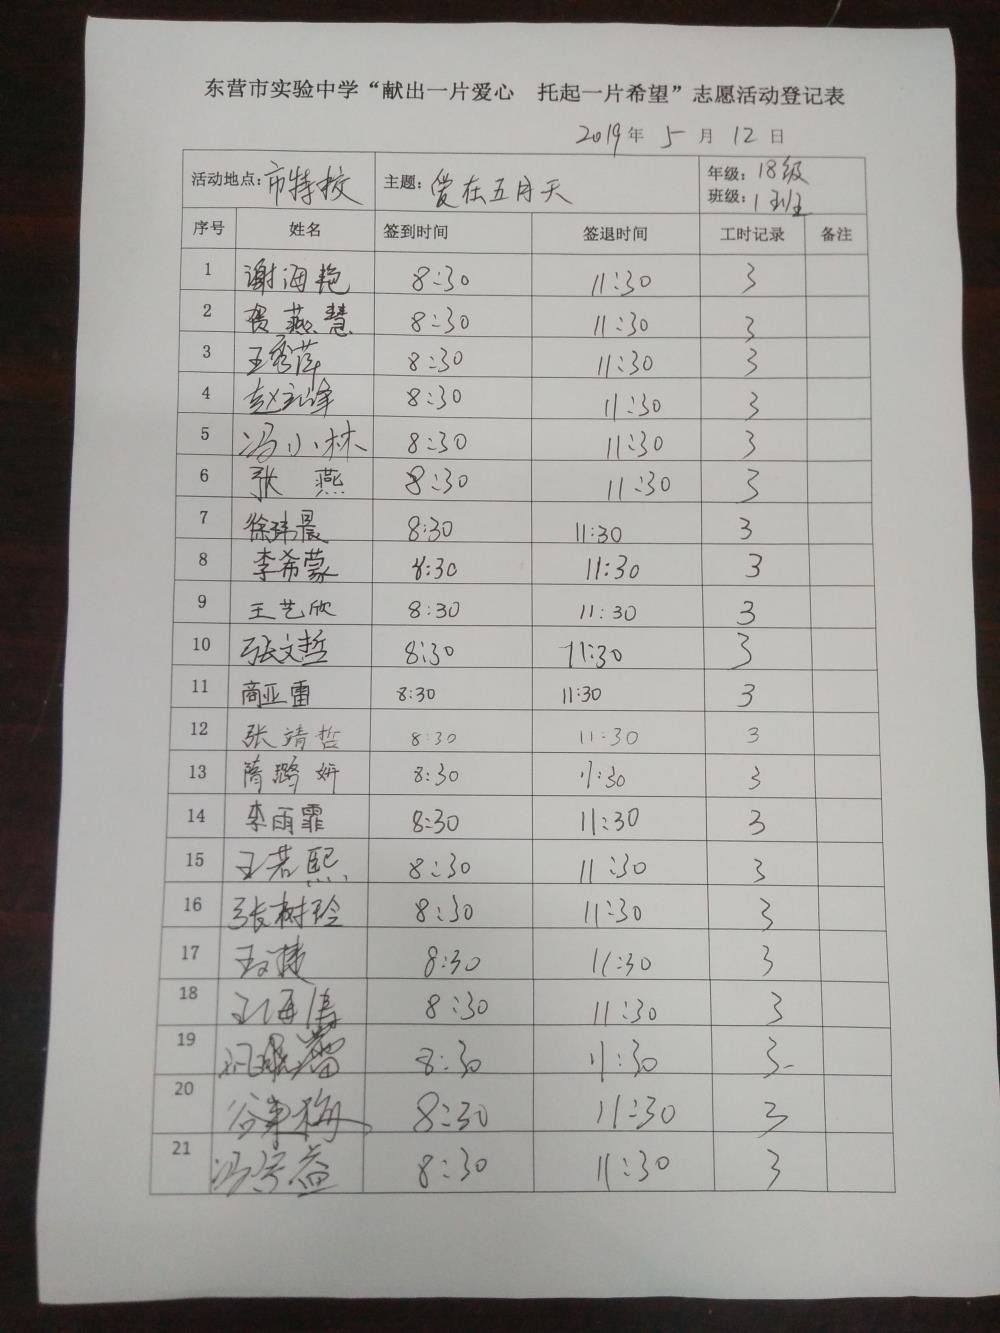 东营市实验中学“献出一片爱心 托起一片希望”志愿活动登记表
2019年 5 月 12 日
活动地点:市特校 主题:爱在五月天 年级:18级
班级:1班
序号 姓名 签到时间 签退时间 工时记录 备注
1 谢海艳 8:30 11:30 3
2 贺燕慧 8:30 11:30 3
3 王秀萍 8:30 11:30 3
4 赵 8:30 11:30 3
5 冯小林 8:30 11:30 3
6 张燕 8:30 11:30 3
7 徐玮晨 8:30 11:30 3
8 李希蒙 8:30 11:30 3
9 王艺欣 8:30 11:30 3
10 张文哲 8:30 11:30 3
11 商亚雷 8:30 11:30 3
12 张靖哲 8:30 11:30 3
13 隋璐妍 8:30 11:30 3
14 李雨霏 8:30 11:30 3
15 王若熙 8:30 11:30 3
16 张树玲 8:30 11:30 3
17 8:30 11:30 3
18 王海倩 8:30 11:30 3
19 8:30 11:30 3
20 谷东梅 8:30 11:30 3
21 冯 8:30 11:30 3